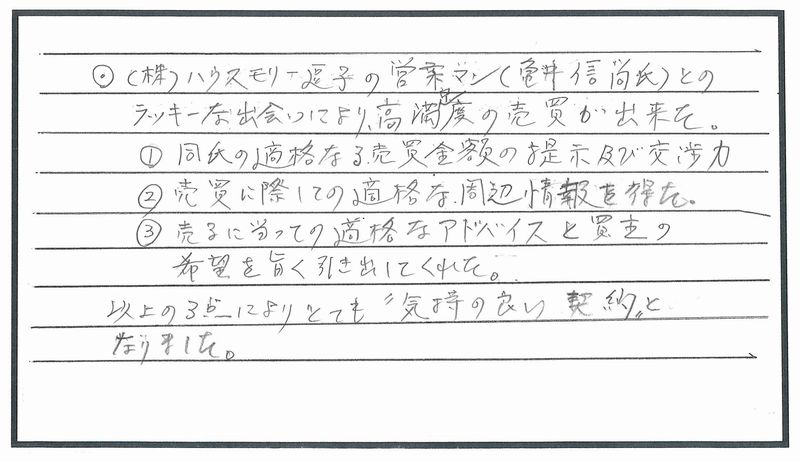 ⊙(株)ハウスモリー逗子の営業マン(亀井信尚氏)との
ラッキーな出会いにより、高満足度の売買が出来た。
① 同氏の適格なる売買金額の提示及び交渉力
② 売買に際しての適格な周辺情報を得た。
③ 売るに当っての適格なアドバイスと買主の
希望を旨く引き出してくれた。
以上の3点によりとても“気持の良い 契約”と
なりました。